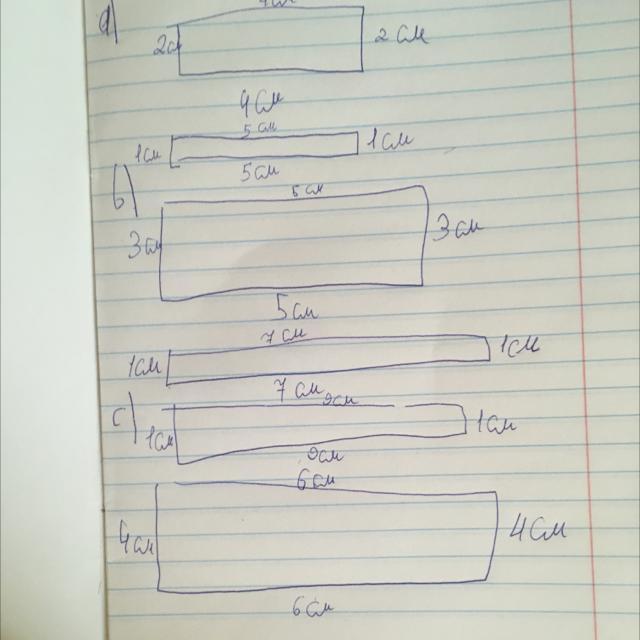 a)
4 см
2 см 2 см
4 см
5 см
1 см 1 см
5 см
b)
5 см
3 см 3 см
5 см
7 см
1 см 1 см
7 см
c)
9 см
1 см 1 см
9 см
6 см
4 см 4 см
6 см